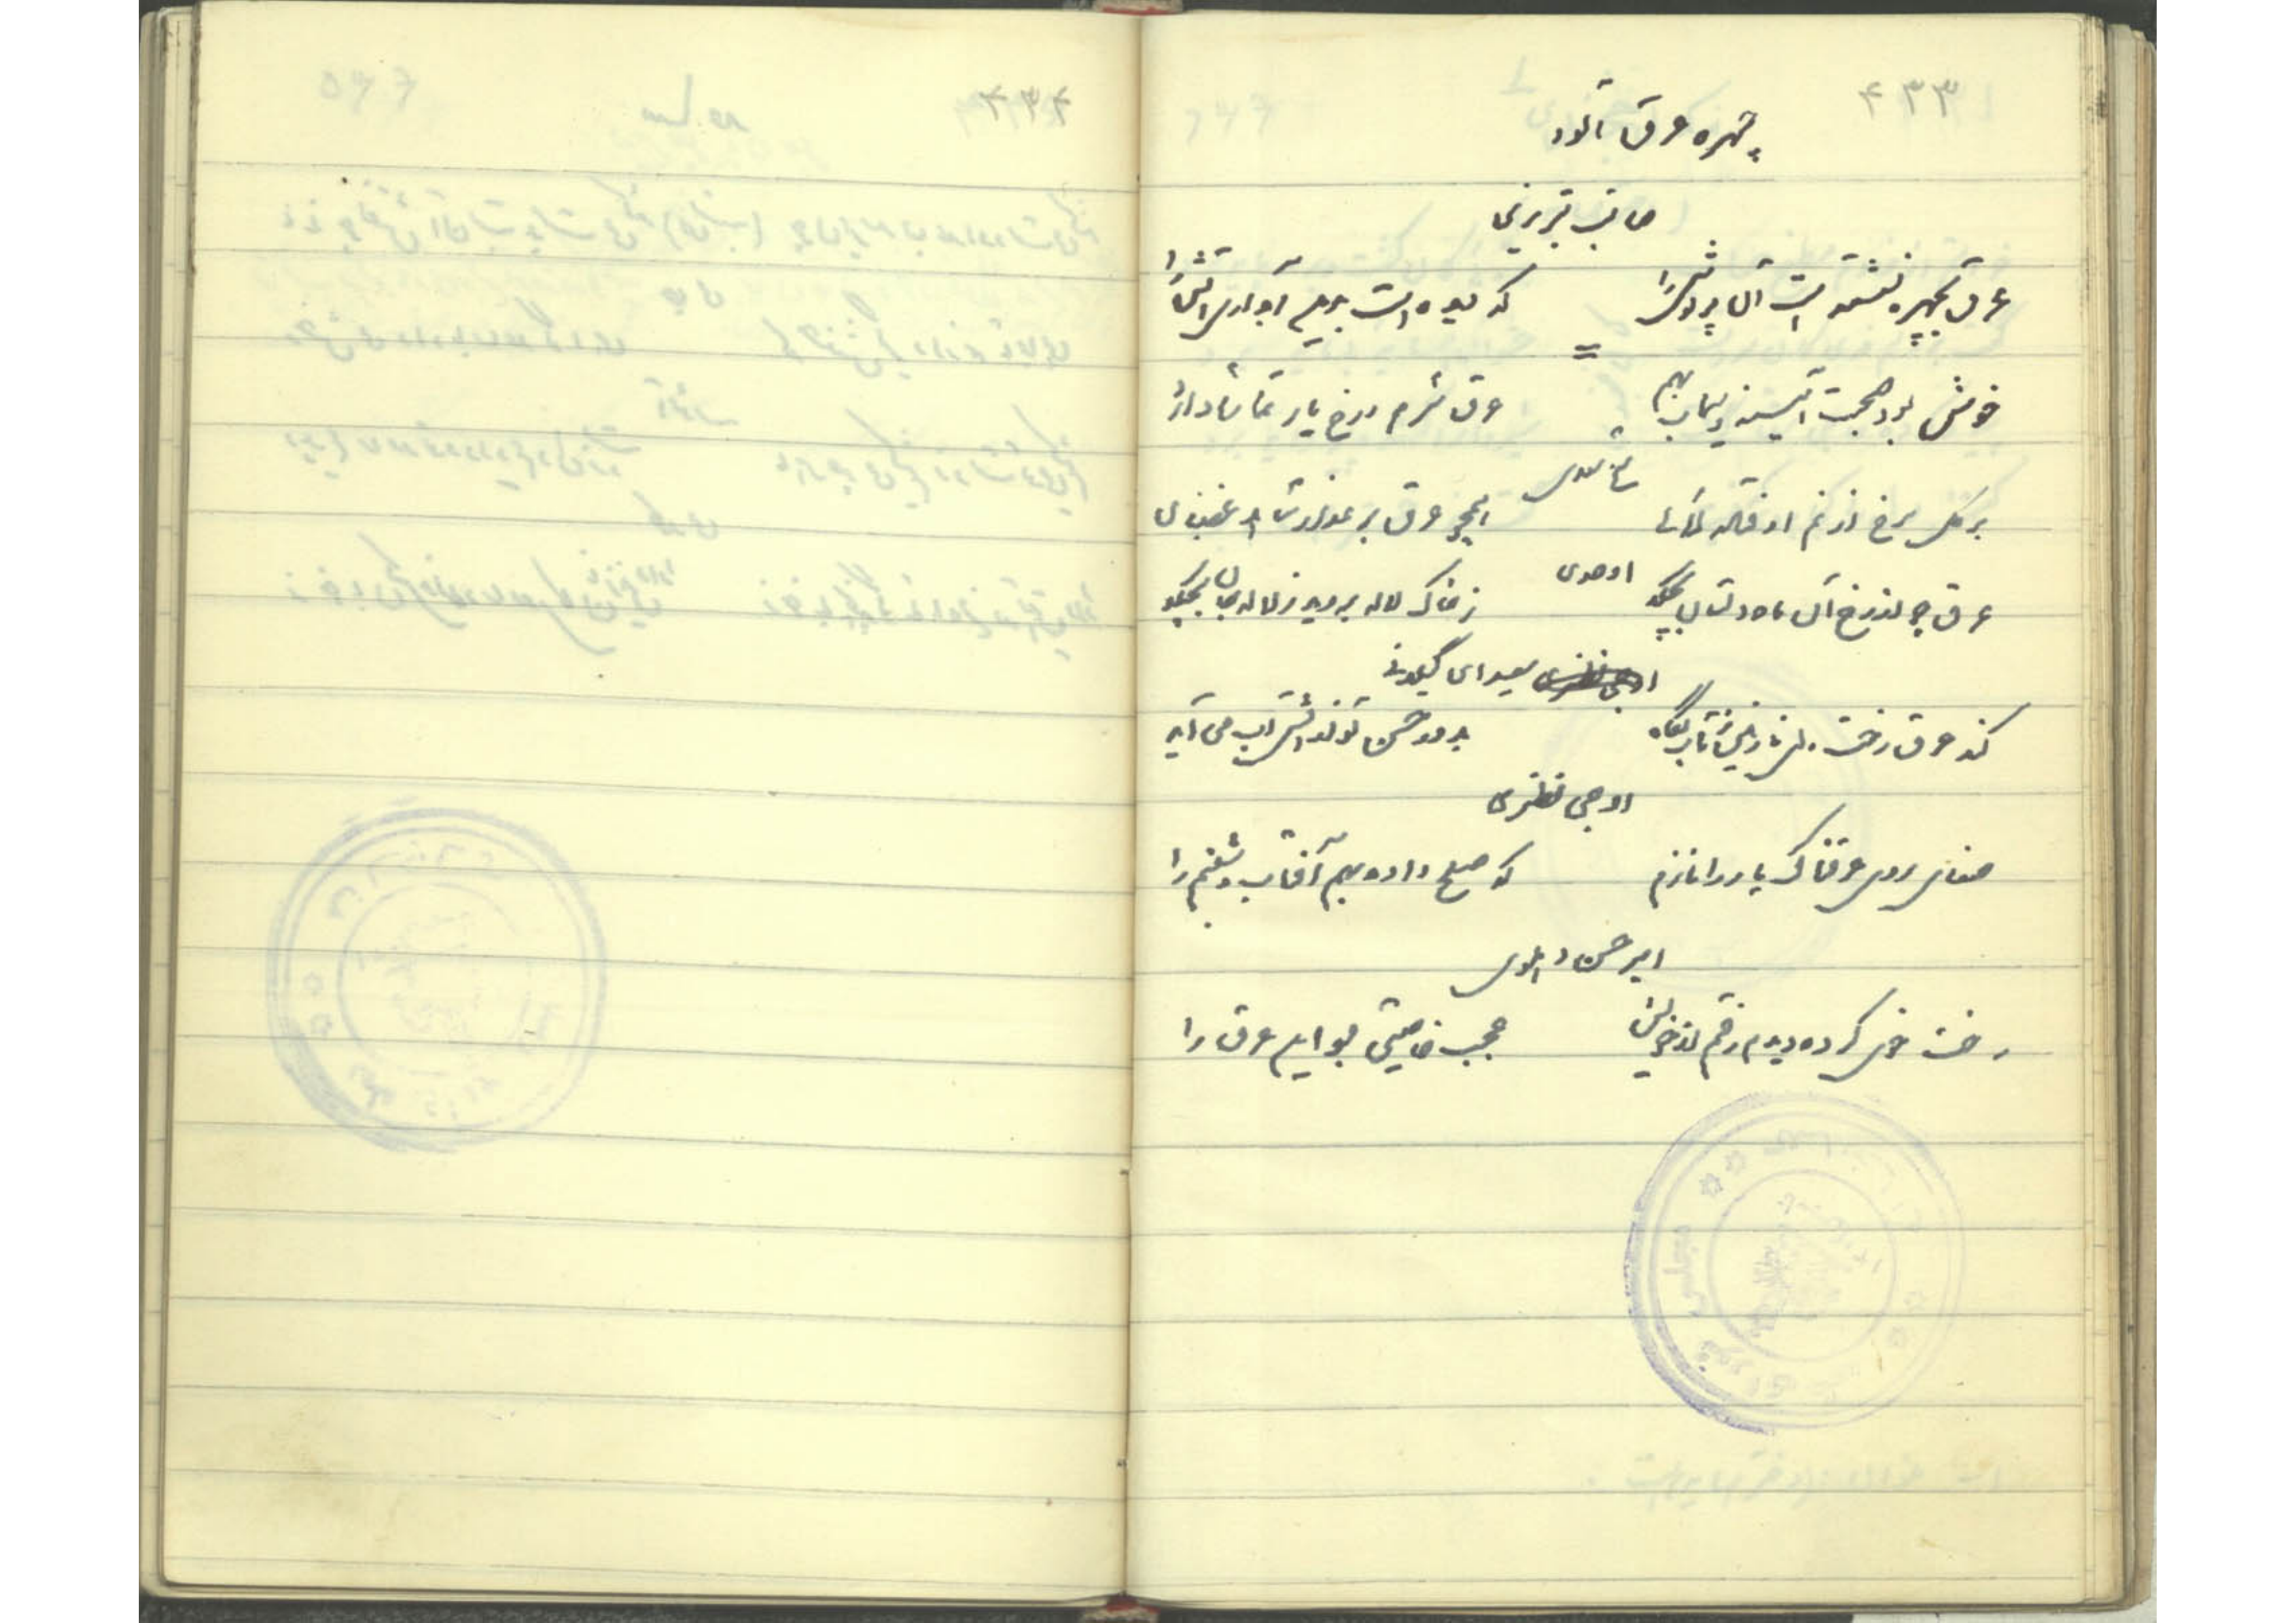 ۴۳۳
چهره عرق آلود
صائب تبریزی
عرق بچهره نشسته است آن پریوش را
که دیده است بهم آب و آتش را
=
خوش بود صحبت آئینه و سیماب بهم
عرق شرم و رخ یار تماشا دارد
سعدی
بر گل سرخ از نم اوفتاده لآلی
همچو عرق بر عذار شاهد غضبان
اوحدی
عرق چو از رخ آن ماه دلستان بچکد
ز خاک لاله بروید ز لاله جان بچکد
سعیدای گیلانی
کند عرق رخت
ز حسن تو از آتش آب می آید
اوجی نطنزی
صفای روی عرقناک یار را نازم
که صلح داده بهم آفتاب و شبنم را
امیر حسن دهلوی
رخت خوی کرده دیدم رفتم از خویش
عجب خاصیتی بود این عرق را
۴۳۴